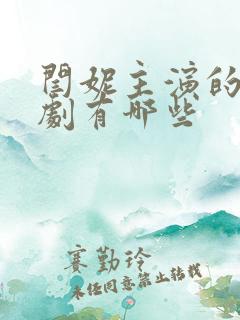 閆妮主演的
劇有哪些
賽勤玲
未经同意禁止转载